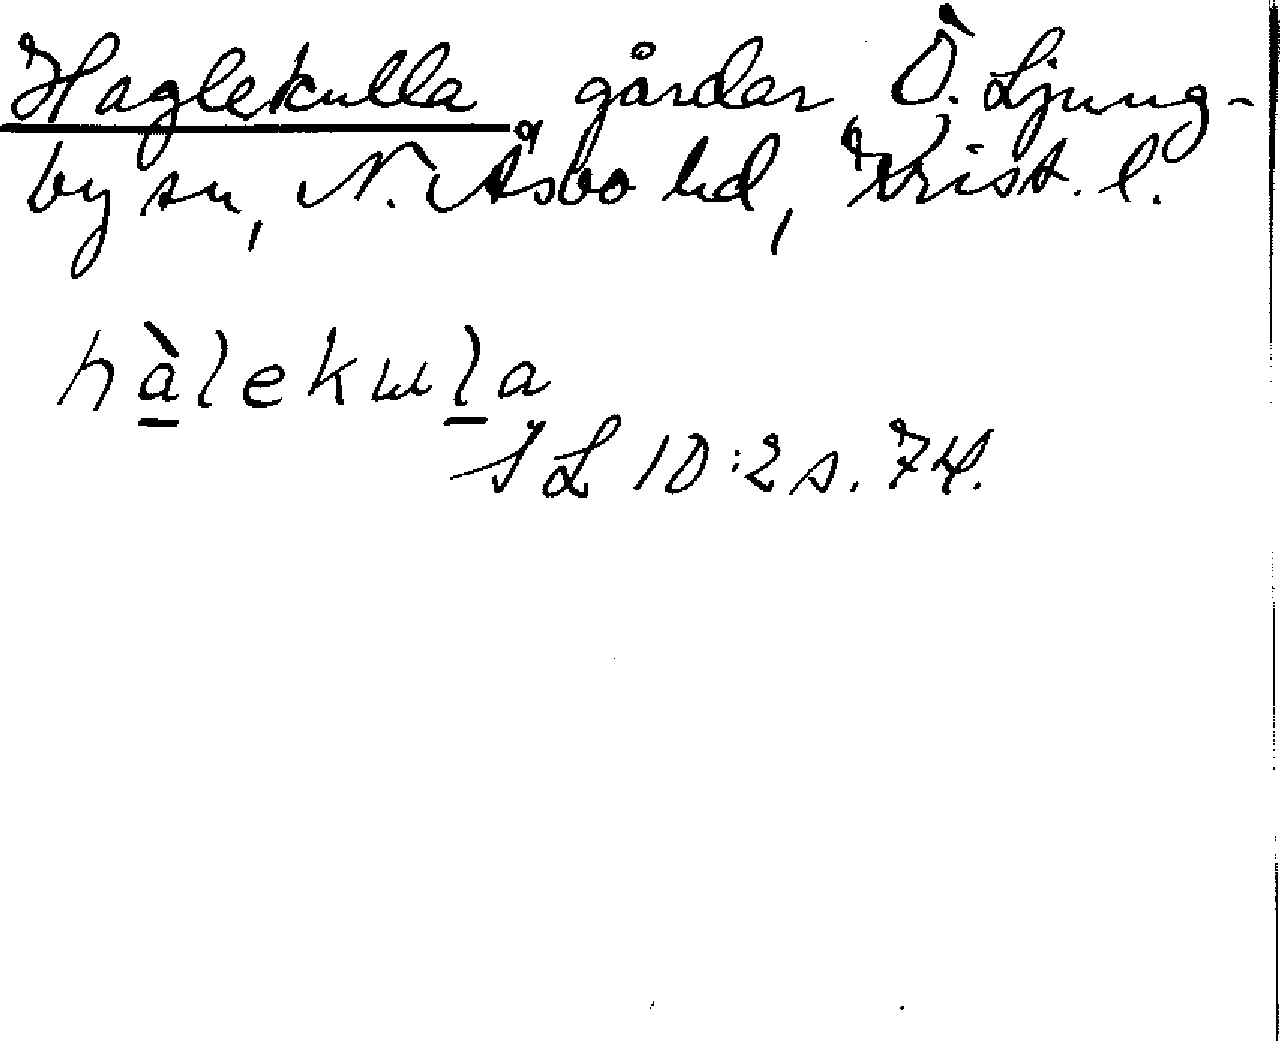 Haglekulla gårdar Ö. Ljung-
by sn, N. Åsbo hd, Krist. l.
hàlekula
SL 10:2 s. 74.